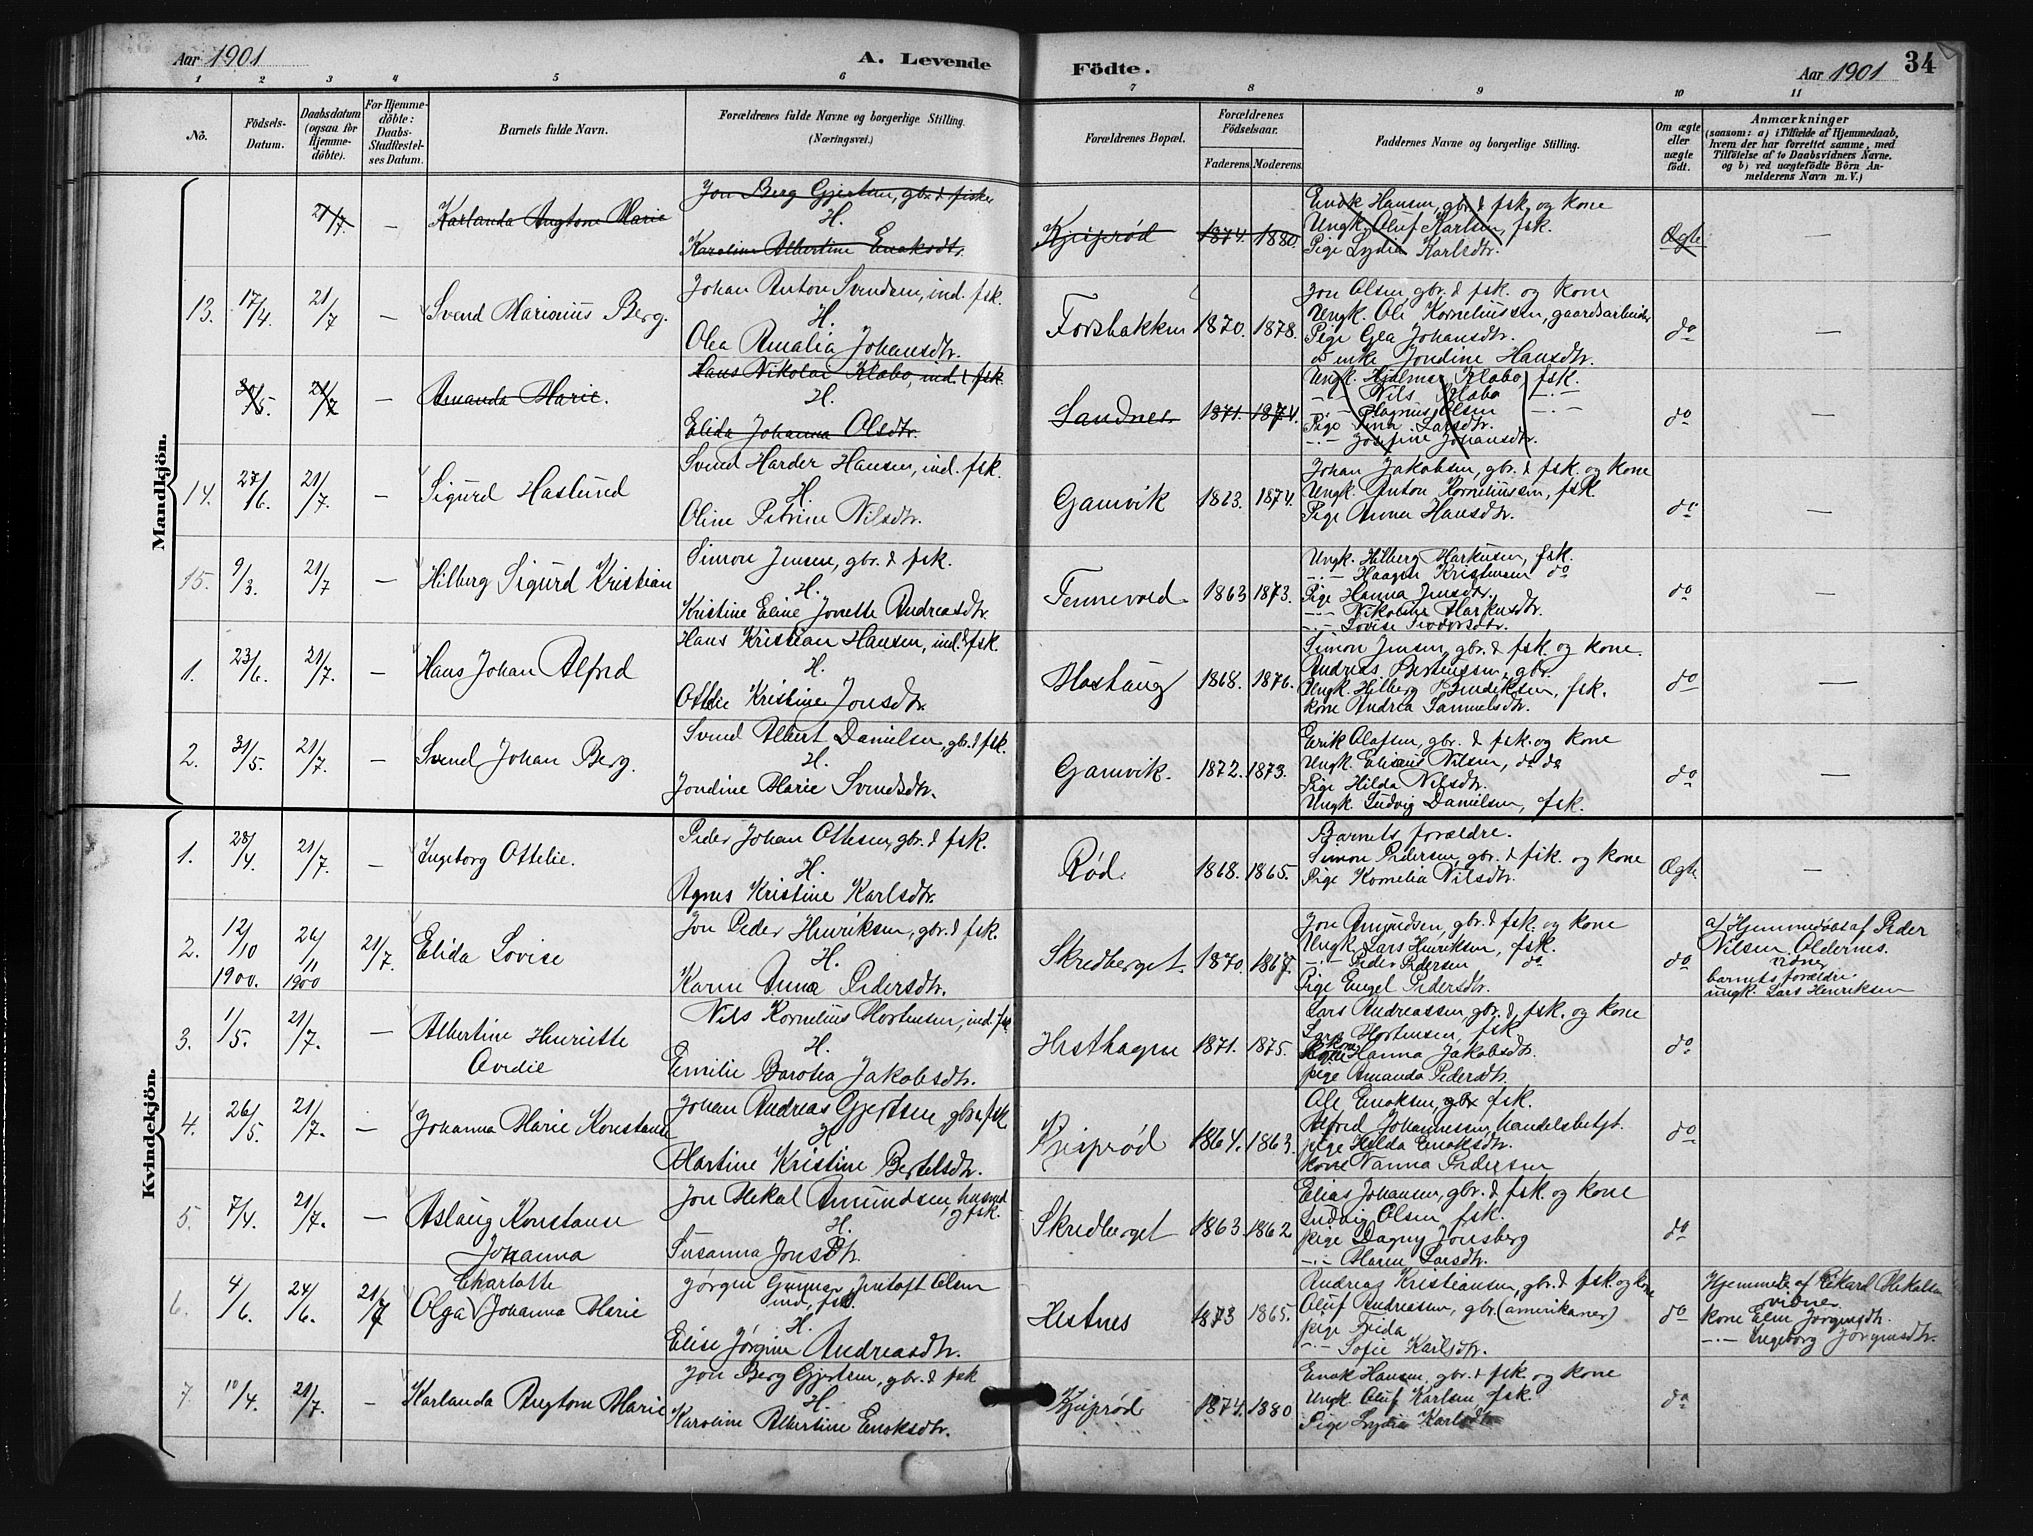 Aar 1901
A. Levende
Födte.
Aar 1901
34
1 2 3 4 5 6 7 8 9 10 11
No.
Födsels-
Datum.
Daabsdatum
(ogsaa for
Hjemme-
döbte).
For Hjemme-
döbte:
Daabs-
Stadfæstel-
ses Datum.
Barnets fulde Navn.
Forældrenes fulde Navne og borgerlige Stilling.
(Næringsvei.)
Forældrenes Bopæl.
Forældrenes
Födselsaar.
Faderens. Moderens.
Faddernes Navne og borgerlige Stilling.
Om ægte
eller
uægte
födt.
Anmærkninger
(saasom: a) i Tilfælde af Hjemmedaab,
hvem der har forrettet samme, med
Tilföielse af to Daabsvidners Navne.
og b) ved uægtefödte Börn An-
melderens Navn m. V.)
Mandkjön.
21/7.
Karlanda Angtom Marie
Jon Berg Gjertsen, gbr. & fisker
H.
Karoline Albertine Enoksdtr.
Kjuprød
1874. 1880.
Enok Hansen, gbr. & fsk, og kone
Ungk. Oluf Karlsen, fsk.
Pige Lydia Karlsdtr.
Ægte
—
13.
17/4.
21/7
—
Svend Marionius Berg.
Johan Anton Svendsen, ind. fsk.
H.
Olea Amalia Johansdtr.
Forsbakken
1870. 1878.
Jon Olsen, gbr. & fsk. og kone
Ungk. Ole Korneliussen, gaardsarbeider
Pige Gea Johansdtr.
enke Jondine Hansdtr.
do
—
30/5.
21/7
—
Amanda Marie.
Hans Nikolai Klabo, ind. & fsk.
H.
Elida Johanna Olsdtr.
Sandnes
1871. 1874.
Ungk. Hjalmar Klabo fsk.
-..- Nils Klabo -..-
-..- Magnus Olsen -..-
Pige Tina Larsdtr.
-..- Josefine Johansdtr.
do
—
14.
27/6.
21/7.
—
Sigurd Haslund
Svend Harder Hansen, ind. fsk.
H.
Oline Petrine Nilsdtr.
Gamvik
1863. 1874.
Johan Jakobsen, gbr. & fsk. og kone
Ungk. Anton Korneliussen, fsk.
Pige Anna Hansdtr.
do
—
15.
9/3.
21/7
—
Hilberg Sigurd Kristian
Simon Jensen, gbr. & fsk.
H.
Kristine Eline Jonette Andreasdtr.
Tennevold
1863 1873.
Ungk. Hilberg Markusen, fsk.
-..- Haagen Kristensen do
Pige Hanna Jensdtr.
-..- Nikoline Markusdtr.
-..- Lovise Teodorsdtr.
do
—
1.
23/6.
21/7.
—
Hans Johan Alfred
Hans Kristian Hansen, ind. & fsk.
H.
Ottilie Kristine Jonsdtr.
Moshaug
1868. 1876.
Simon Jensen, gbr. & fsk. og kone.
Andreas Berteussen, gbr.
Ungk. Hilberg Bendiksen, fsk.
kone Andrea Samuelsdtr.
do
—
2.
31/5.
21/7.
—
Svend Johan Berg.
Svend Albert Danielsen, gbr. & fsk.
H.
Jondine Marie Svendsdtr.
Gamvik.
1872. 1873.
Erik Olafsen, gbr. & fsk. og kone
Ungk. Nilsen, do do
Pige Hilda Nilsdtr.
Ungk. Ludvig Danielsen, fsk.
do
—
Kvindekjön.
1.
28/4.
21/7.
—
Ingeborg Ottelie.
Peder Johan Ottesen, gbr. & fsk.
H.
Agnes Kristine Karlsdtr.
Rød.
1868. 1865.
Barnets forældre.
Simon Pedersen, gbr. & fsk. og kone
Pige Kornelia Nilsdtr.
Ægte
—
2.
12/10
1900.
26/11
1900
21/7.
Elida Lovise
Jon Peder Henriksen, gbr. & fsk.
H.
Karen Anna Pedersdtr.
Skredberget.
1870. 1867.
Jon Amundsen, gbr. & fsk. og kone
Ungk. Lars Henriksen, fsk.
-..- Peder Pedersen do
Pige Engel Pedersdtr.
do
a/ Hjemmedøbt af Peder
Nilsen Oldernes.
vidner
barnets forældre
ungk. Lars Henriksen
3.
1/5.
21/7.
—
Albertine Henriette
Ovedie
Nils Kornelius Mortensen, ind. fsk.
H.
Emilie Barotea Jakobsdtr.
Hesthagen
1871. 1875.
Lars Andreassen, gbr. & fsk. og kone
Lars Mortensen, fsk
kone Hanna Jakobsdtr.
pige Amanda Pedersdtr.
do
4.
26/5.
21/7.
—
Johanna Marie Konstanse
Johan Andreas Gjertsen gbr & fsk
H
Martine Kristine Bertelsdtr.
Kjuprød
1864. 1863.
Ole Enoksen, gbr fsk.
Alfred Johannessen, handelsbetjt.
pige Hilda Enoksdtr.
kone Nanna Pedersen
do
5.
7/4.
21/7.
—
Aslaug Konstanse
Johanna
Jon Mekal Amundsen, husmd
og fsk.
H.
Susanna Jonsdtr.
Skredberget
1863. 1862
Elias Johansen, gbr. & fsk. og kone
Ludvig Olsen fsk.
pige Dagny Jonsberg
-..- Maren Larsdtr.
do
6.
4/6.
24/6.
21/7
Charlotte
Olga Johanna Marie
Jørgen Gunnar Jentoft Olsen
ind, fsk.
H.
Elise Jørgine Andreasdtr.
Hestnes
1873 1865.
Andreas Kristiansen, gbr. & fsk og kone
Oluf Andreassen, gbr. (amerikaner)
pige Frida
-..- Sofie Karlsdtr.
do
Hjemmed. af Edvard Mekalsen
vidner
kone Elen Jørgensdtr.
-..- Ingeborg Jørgensdtr.
7.
10/4.
21/7.
—
Karlanda Angtom Marie
Jon Berg Gjertsen, gbr. & fsk
H.
Karoline Albertine Enoksdtr.
Kjuprød
1874. 1880
Enok Hansen, gbr. & fsk. og kone
Ungk Oluf Karlsen fsk.
Pige Lydia Karlsdtr
do